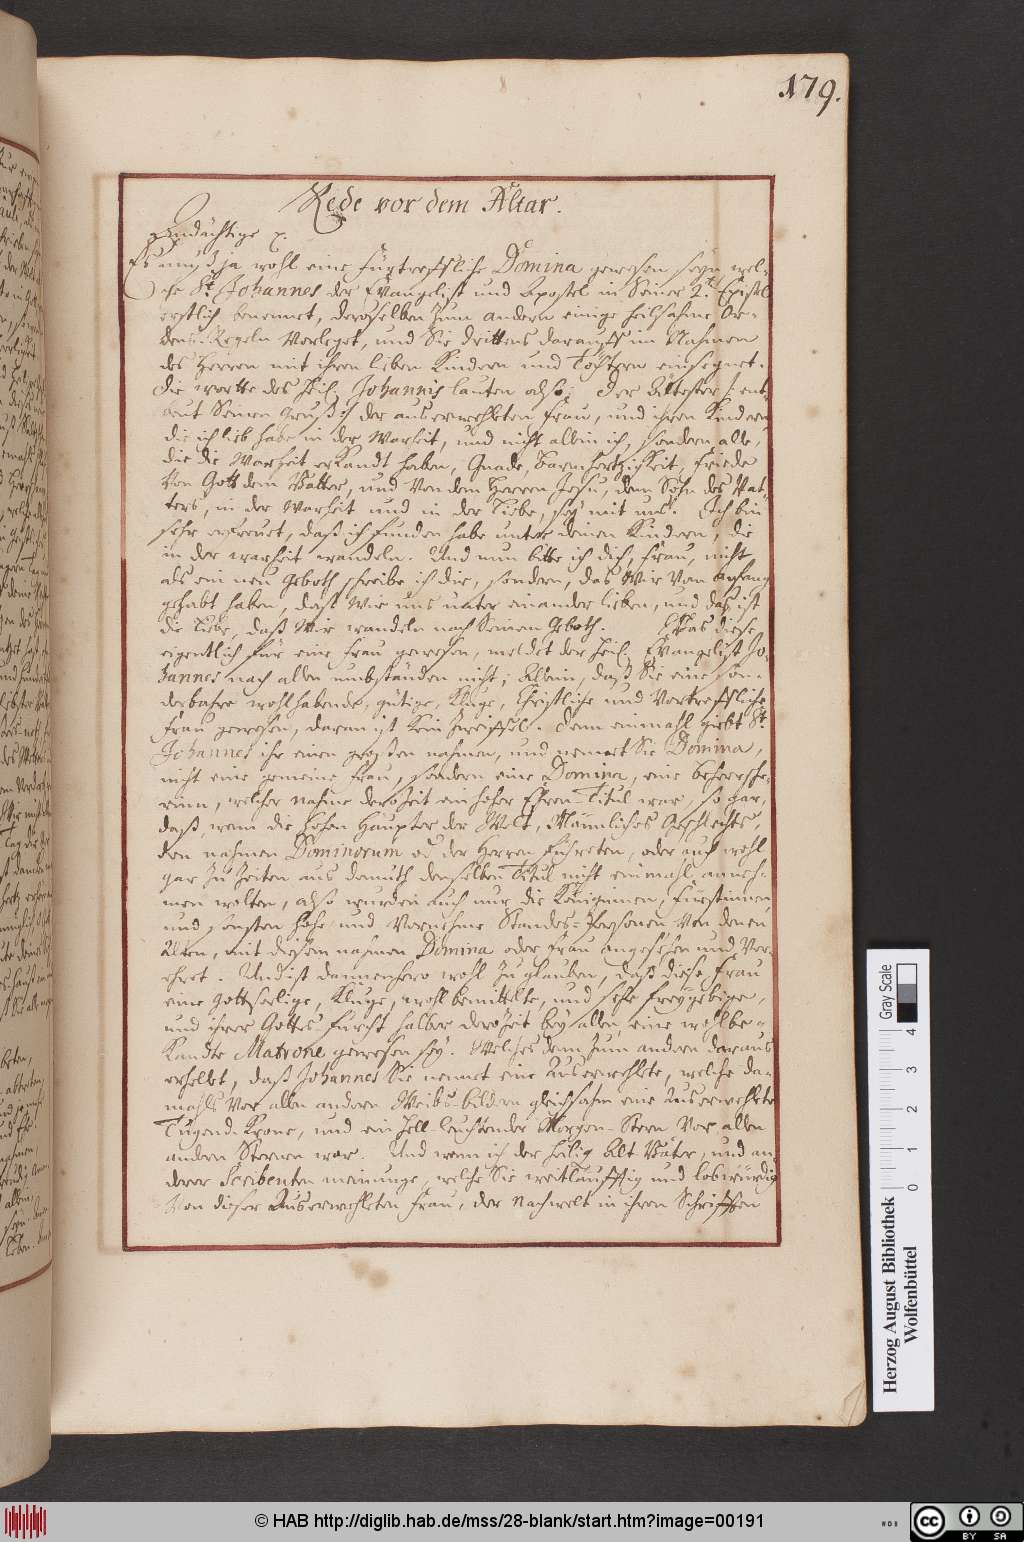 179.
Rede vor dem Altar.
Andächtige p.
Es muß ja wohl eine fürtreffliche Domina gewesen seyn, wel-
che St. Johannes der Evangelist und Apostel in Seiner 2t. Epistel
erstlich benennet, deroselben Zum andern einige heilsahme Or-
dens-Regeln Vorleget, und Sie drittens darauff im Nahmen
des Herren mit ihren lieben Kindern und Töchtern einsegnet.
Die wortte des Heil. Johannis lauten also; Der Ältester, ent-
beut Seinen Gruß der auserwehlten Frau, und ihren Kindern
die ich lieb habe in der Warheit, und nicht allein ich, sondern alle,
die die Warheit erkandt haben, Gnade, Barmhertzigkeit, Friede
Von Gott dem Vatter, und Von dem Herren Jesu, dem Sohn des Vat-
ters, in der Warheit und in der Liebe, sey mit uns. Ich bin
sehr erfreuet, daß ich funden habe unter deinen Kindern, die
in der warheit wandeln. Und nun bitte ich dich, Frau, nicht
als ein neu Geboth schreibe ich dir, sondern, das Wir Von anfang
gehabt haben, daß Wir uns unter einander lieben, und das ist
die Liebe, daß Wir wandeln nach Seinem Geboth. Was diese
eigentlich für eine Frau gewesen, meldet der Heil. Evangelist Jo-
hannes nach allen umbständen nicht; Allein, daß Sie eine son-
derbahre wohlhabende, gütige, Kluge, Christliche und Vortreffliche
Frau gewesen, daran ist Kein Zweiffel. Denn einmahl giebt St.
Johannes ihr einen großen nahmen, und nennet Sie Domina,
nicht eine gemeine Frau, sondern eine Domina, eine Beherrsche-
rinn, welcher nahme derozeit ein hoher Ehren-Titul war, so gar,
daß, wenn die hohen Häupter der Welt, Männliches Geschlechts,
den nahmen Dominorum od. der Herren führeten, oder auch wohl
gar Zu Zeiten aus demuth denselben Titul nicht einmahl anneh-
men wolten, also wurden auch nur die Königinnen, Fürstinnen
und sonsten hohe und Vornehme Standes-Persohnen Von denen
Alten, mit diesem nahmen Domina oder Frau angesehen und Ver-
ehret. Und ist dannenhero wohl Zu glauben, daß diese Frau
eine Gottseelige, Kluge, wohlbemittelte, und sehr freygebige,
und ihrer Gottes-furcht halber derozeit bey allen eine wohlbe-
Kandte Matrone gewesen sey. Welches denn Zum andern daraus
erhellet, daß Johannes Sie nennet eine Auserwehlte, welche da-
mahls Vor allen andern Weibs-bildern gleichsahm eine Auserwehlte
Tugend-Krone, und ein Hell-leuchtender Morgen-Stern Vor allen
andern Sternen war. Und wenn ich der heilig Alt Väter, und an-
derer Scribenten meinunge, welche Sie weitläufftig und lobwürdig
Von dieser Auserwehlten Frau, der Nachwelt in ihren Schrifften
Herzog August Bibliothek
Wolfenbüttel
Gray Scale
0 1 2 3 4
© HAB http://diglib.hab.de/mss/28-blank/start.htm?image=00191
WDB
CC BY SA